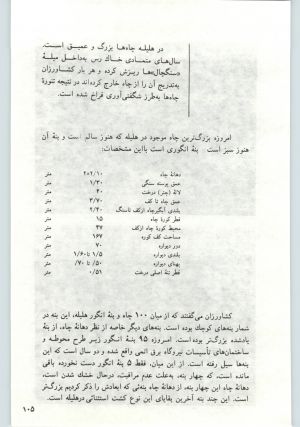 در هلیله چاه‌ها بزرگ و عمیق است.
سال‌های متمادی خاک رس به‌داخل میلهٔ
«سنگچال»ها ریزش کرده و هر بار کشاورزان
به‌تدریج آن را از چاه خارج کرده‌اند در نتیجه تنورهٔ
چاه‌ها به‌طرز شگفتی‌آوری فراخ شده است.
امروزه بزرگ‌ترین چاه موجود در هلیله که هنوز سالم است و بنهٔ آن
هنوز سبز است بنهٔ انگوری است بااین مشخصات:
دهانهٔ چاه ۲×۲/۱۰ متر
عمق پوسته سنگی ۱/۳۰ متر
لانهٔ (چتر) درخت ۶۰ متر
عمق چاه تا کف ۳/۷۰ متر
بلندی آبگیرچاه ازکف تاسنگ ۲/۴۰ متر
قطر کورهٔ چاه ۱۵ متر
محیط کورهٔ چاه ازکف ۴۷ متر
مساحت کف کوره ۱۶۷ متر
دور دیواره ۷۰ متر
بلندی دیواره ۱/۵ تا ۱/۶۰ متر
پهنای دیواره ۵۰/ تا ۷۰/ متر
قطر تنهٔ اصلی درخت ۰/۵۱ متر
کشاورزان می‌گفتند که از میان ۱۰۰ چاه و بنهٔ انگور هلیله، این بنه در
شمار بنه‌های کوچک بوده است. بنه‌های دیگر خاصه از نظر دهانهٔ چاه، از این
یادشده بزرگ‌تر بوده است. امروزه ۹۵ بنهٔ انگور زیر طرح محوطه و
ساختمان‌های تأسیسات نیروگاه برق اتمی واقع شده و دو سال است که این
بنه‌ها سیل رفته است. از این میان، فقط ۵ بنهٔ انگور دست نخورده باقی
مانده است، که چهار بنه، به‌علت عدم مراقبت، درحال خشک شدن است،
دهانهٔ چاه این چهار بنه، از دهانهٔ چاه بنه‌ئی که ابعادش را ذکر کردیم بزرگ‌تر
است. این چند بنه آخرین بقایای این نوع کشت استثنائی درهلیله است.
۱۰۵